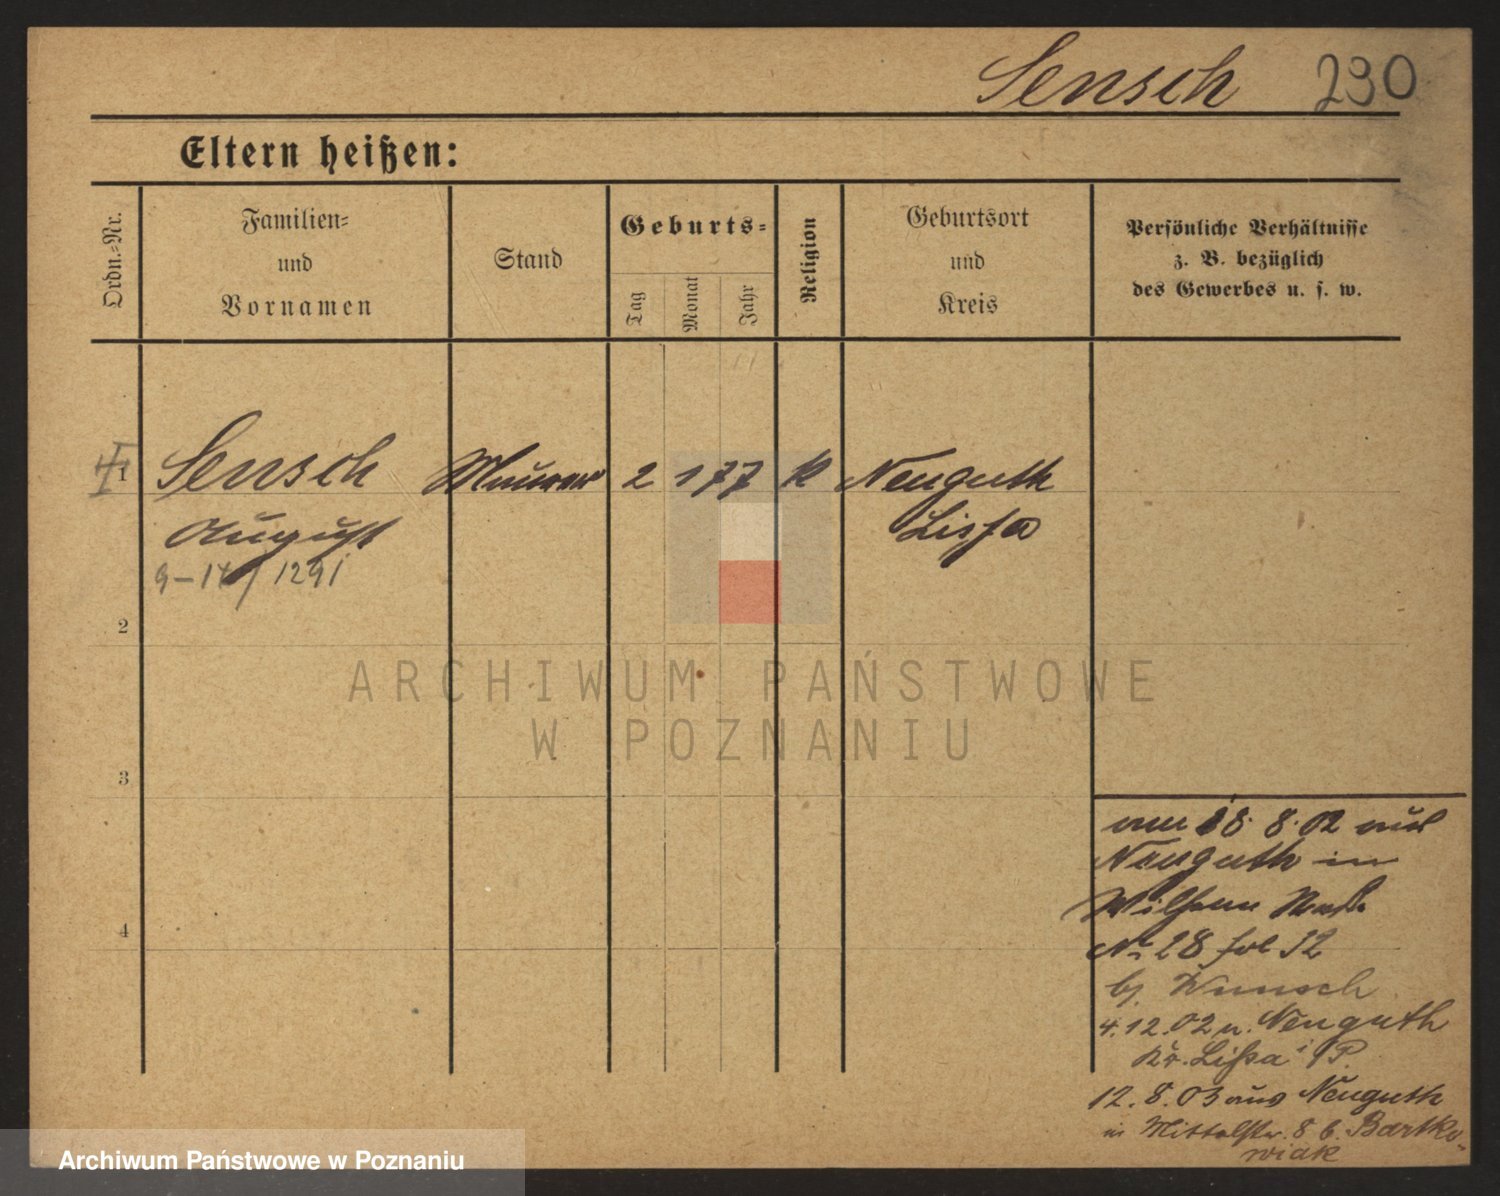 Sensch 290
Eltern heißen:
Ordn.-Nr.
Familien-
und
Vornamen
Stand
Geburts-
Tag
Monat
Jahr
Religion
Geburtsort
und
Kreis
Persönliche Verhältnisse
z. B. bezüglich
des Gewerbes u. s. w.
1 Sensch Maurer 2 1 77 k Neuguth
August Lissa
9-14/1291
2
3
4
am 18. 8. 02 aus
Neuguth in
No 28 fol 12
bj. Wunsch
4.12.02 n. Neuguth
Kr. Lissa i/P.
12. 8. 03 aus Neuguth
in Mittelstr. 8 b. Bartko-
wiak
ARCHIWUM PAŃSTWOWE
W POZNANIU
Archiwum Państwowe w Poznaniu